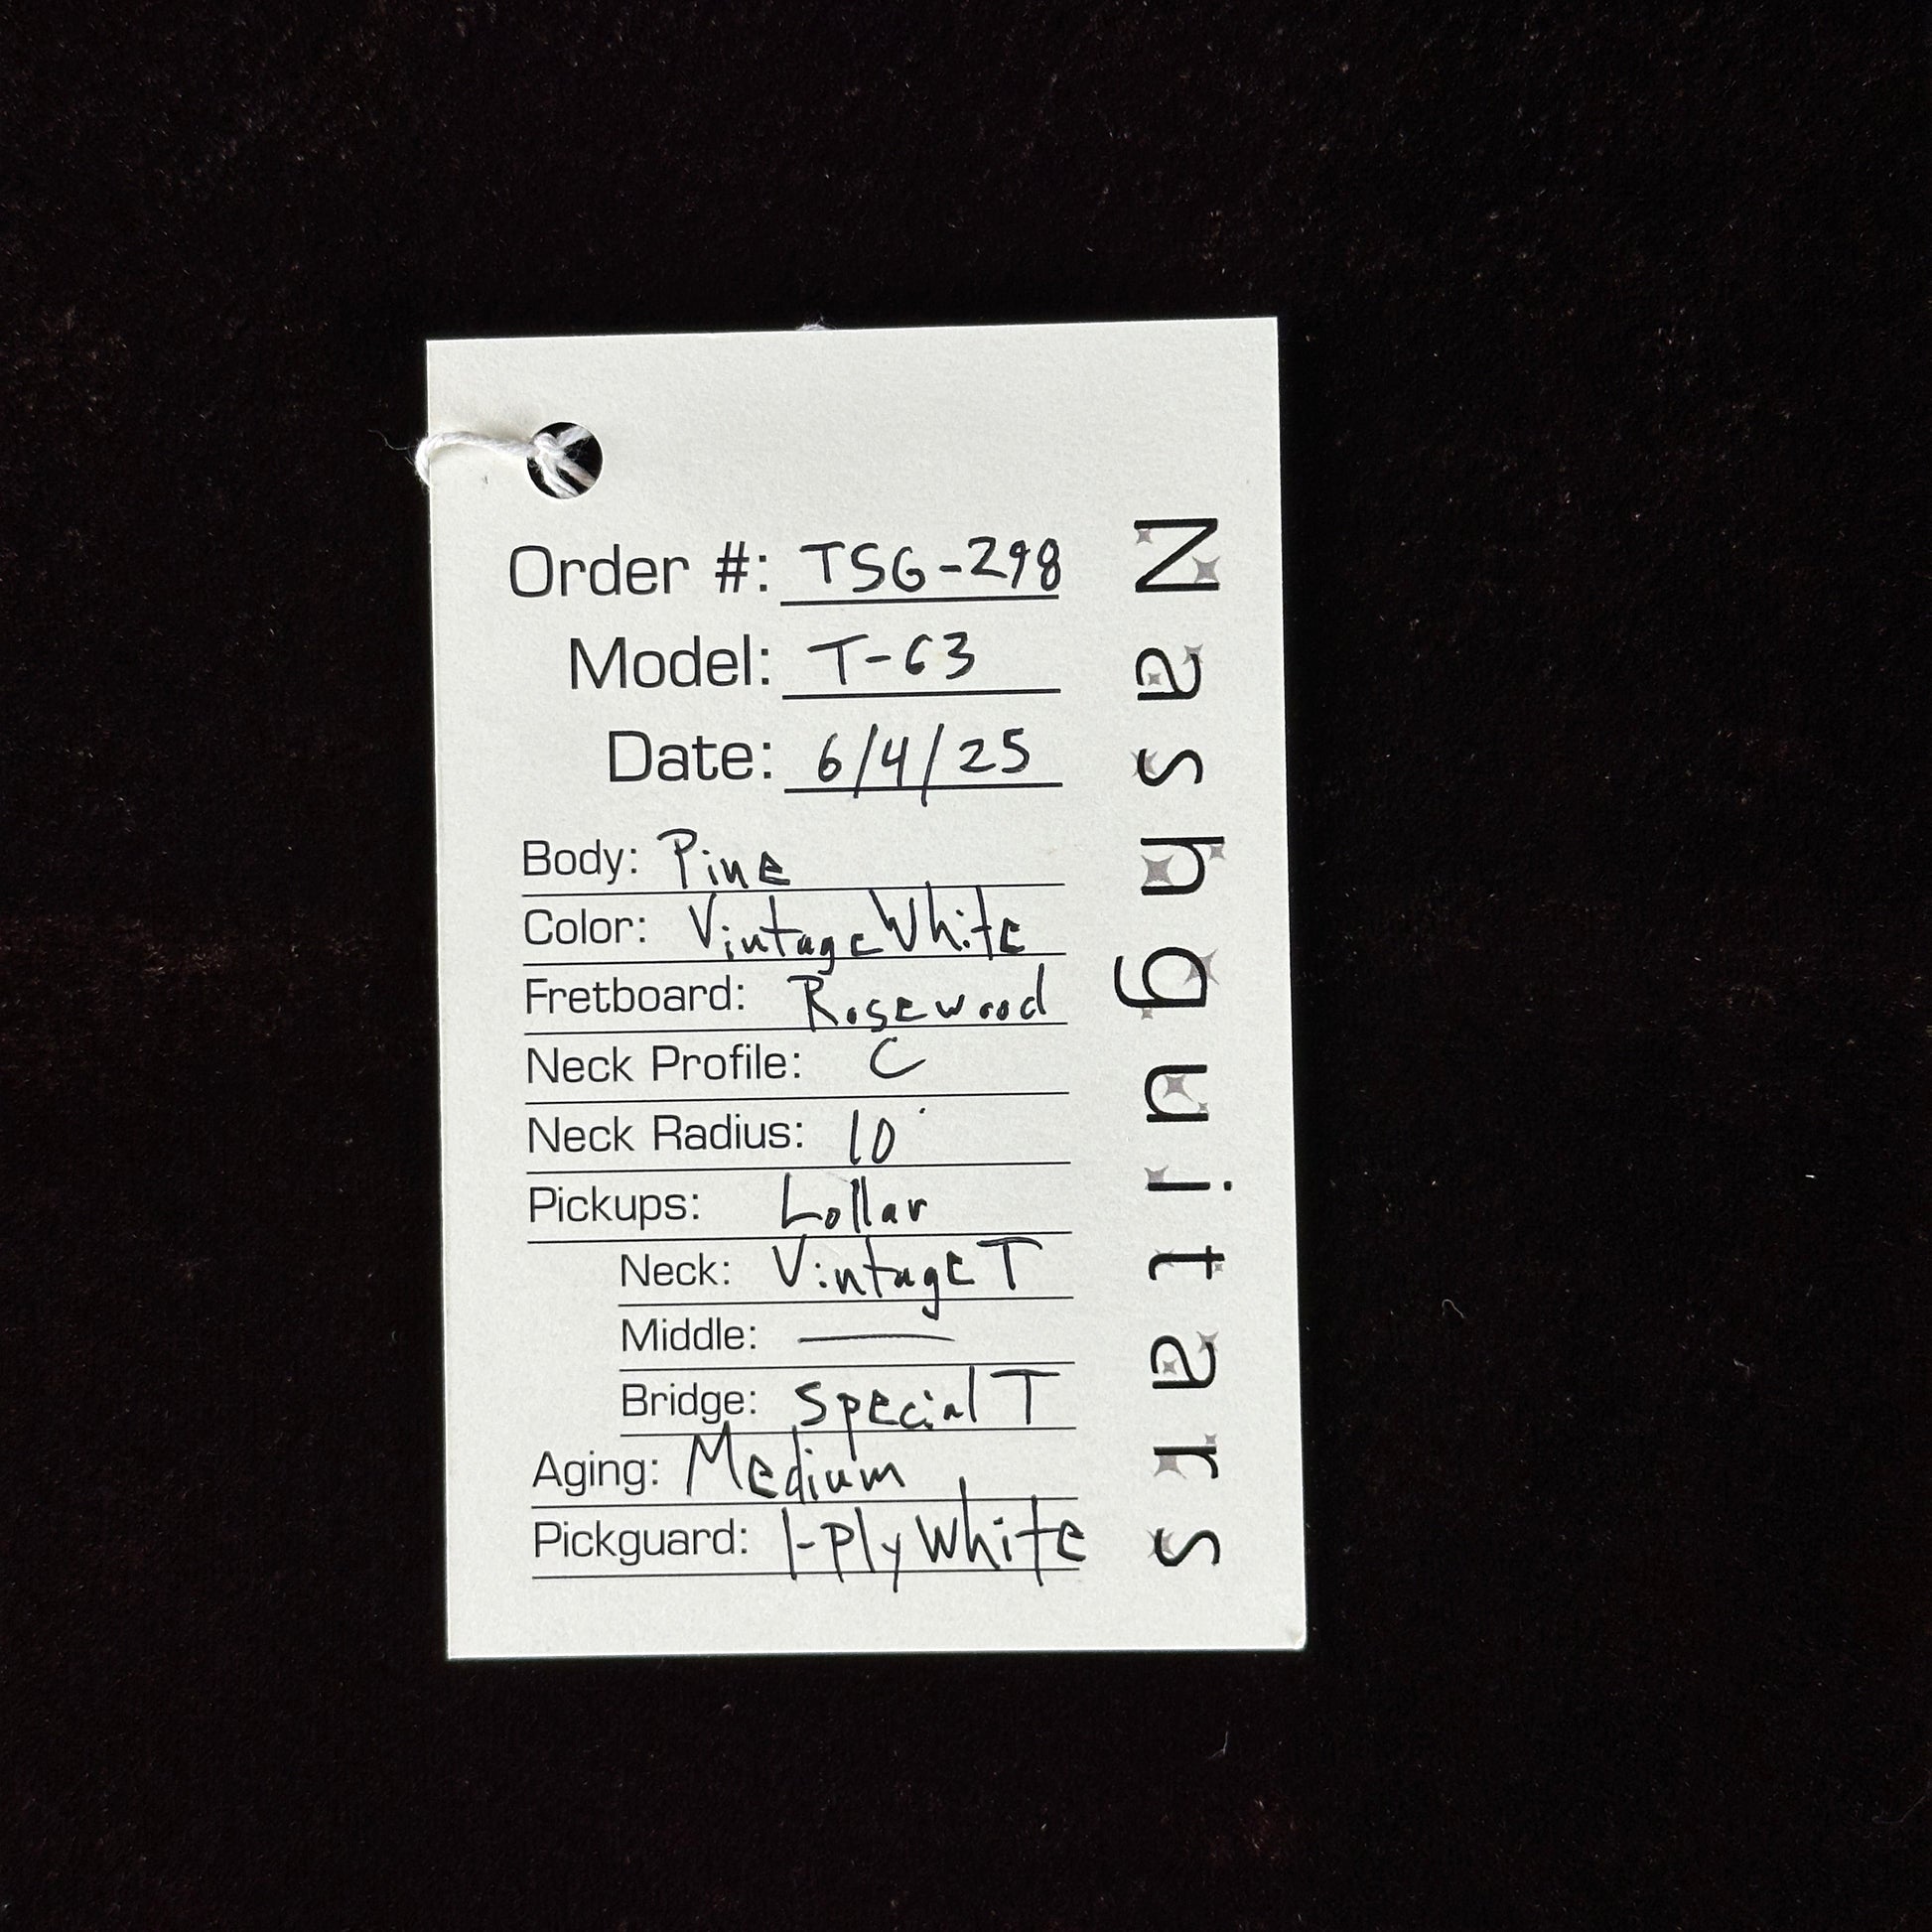 Order #: TSG-298
Model: T-63
Date: 6/4/25
Body: Pine
Color: Vintage White
Fretboard: Rosewood
Neck Profile: C
Neck Radius: 10
Pickups: Lollar
Neck: Vintage T
Middle: —
Bridge: Special T
Aging: Medium
Pickguard: 1-Ply White
Nashguitars